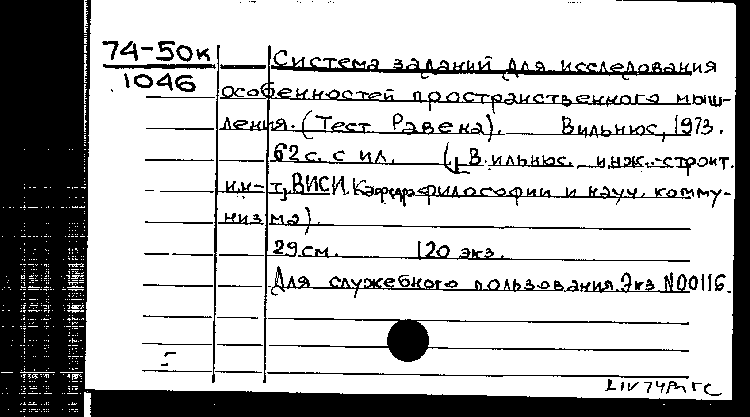 74-50к
1046
Система заданий для исследования
особенностей пространственного мыш-
ления. (Тест Равена). Вильнюс, 1973.
62 с. с ил. (Вильнюс. инж.-строит.
ин-т, ВИСИ. Кафедра философии и науч. комму-
низма).
29 см. 120 экз.
Для служебного пользования. Экз N00116.